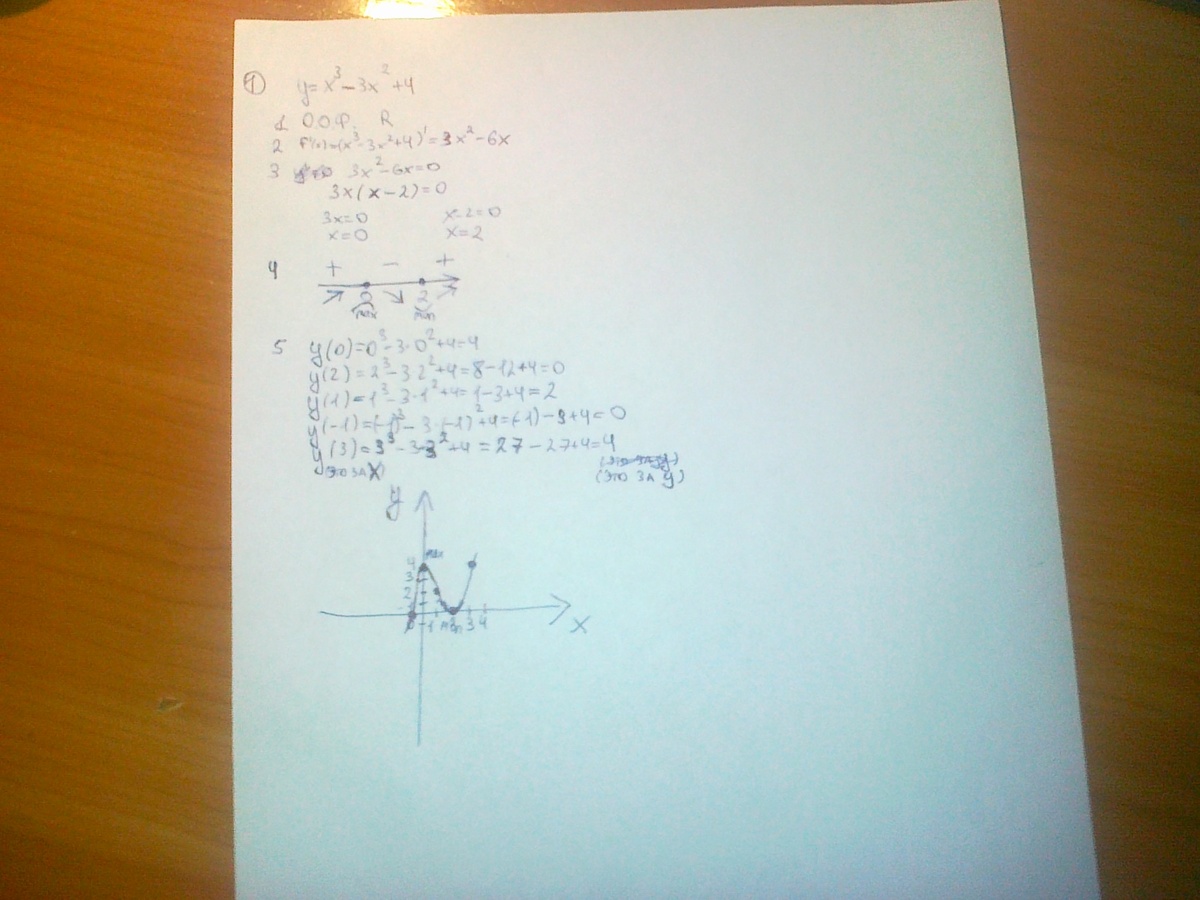 ① y=x³-3x²+4
1 О.О.Ф. R
2 F'(x)=(x³-3x²+4)'=3x²-6x
3 3x²-6x=0
3x(x-2)=0
3x=0 x-2=0
x=0 x=2
4 + - +
0 2
max min
5 y(0)=0³-3·0²+4=4
y(2)=2³-3·2²+4=8-12+4=0
y(1)=1³-3·1²+4=1-3+4=2
y(-1)=(-1)³-3·(-1)²+4=(-1)-3+4=0
y(3)=3³-3·3²+4=27-27+4=4
(это за X) (это за y)
y
max
4
3
2
1 min 3 4
x